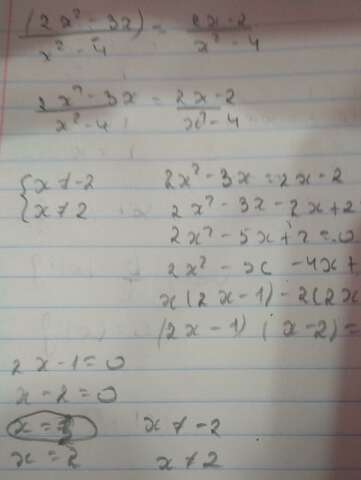 (2x² - 3x) / (x² - 4) = (2x - 2) / (x² - 4)
(2x² - 3x) / (x² - 4) = (2x - 2) / (x² - 4)
{ x ≠ -2 2x² - 3x = 2x - 2
{ x ≠ 2 2x² - 3x - 2x + 2
2x² - 5x + 2 = 0
2x² - x - 4x +
x(2x - 1) - 2(2x
(2x - 1) (x - 2) =
2x - 1 = 0
x - 2 = 0
x = x ≠ -2
x = 2 x ≠ 2